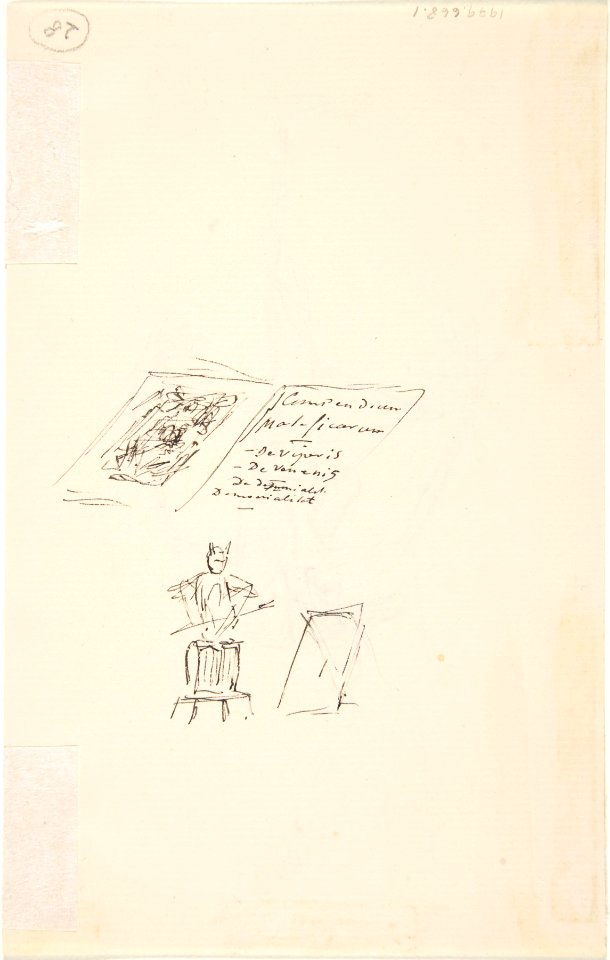 1979.668.1
Compendium
Maleficarum
- De Viperis
- De Venenis
De demonialit
Demonialitat